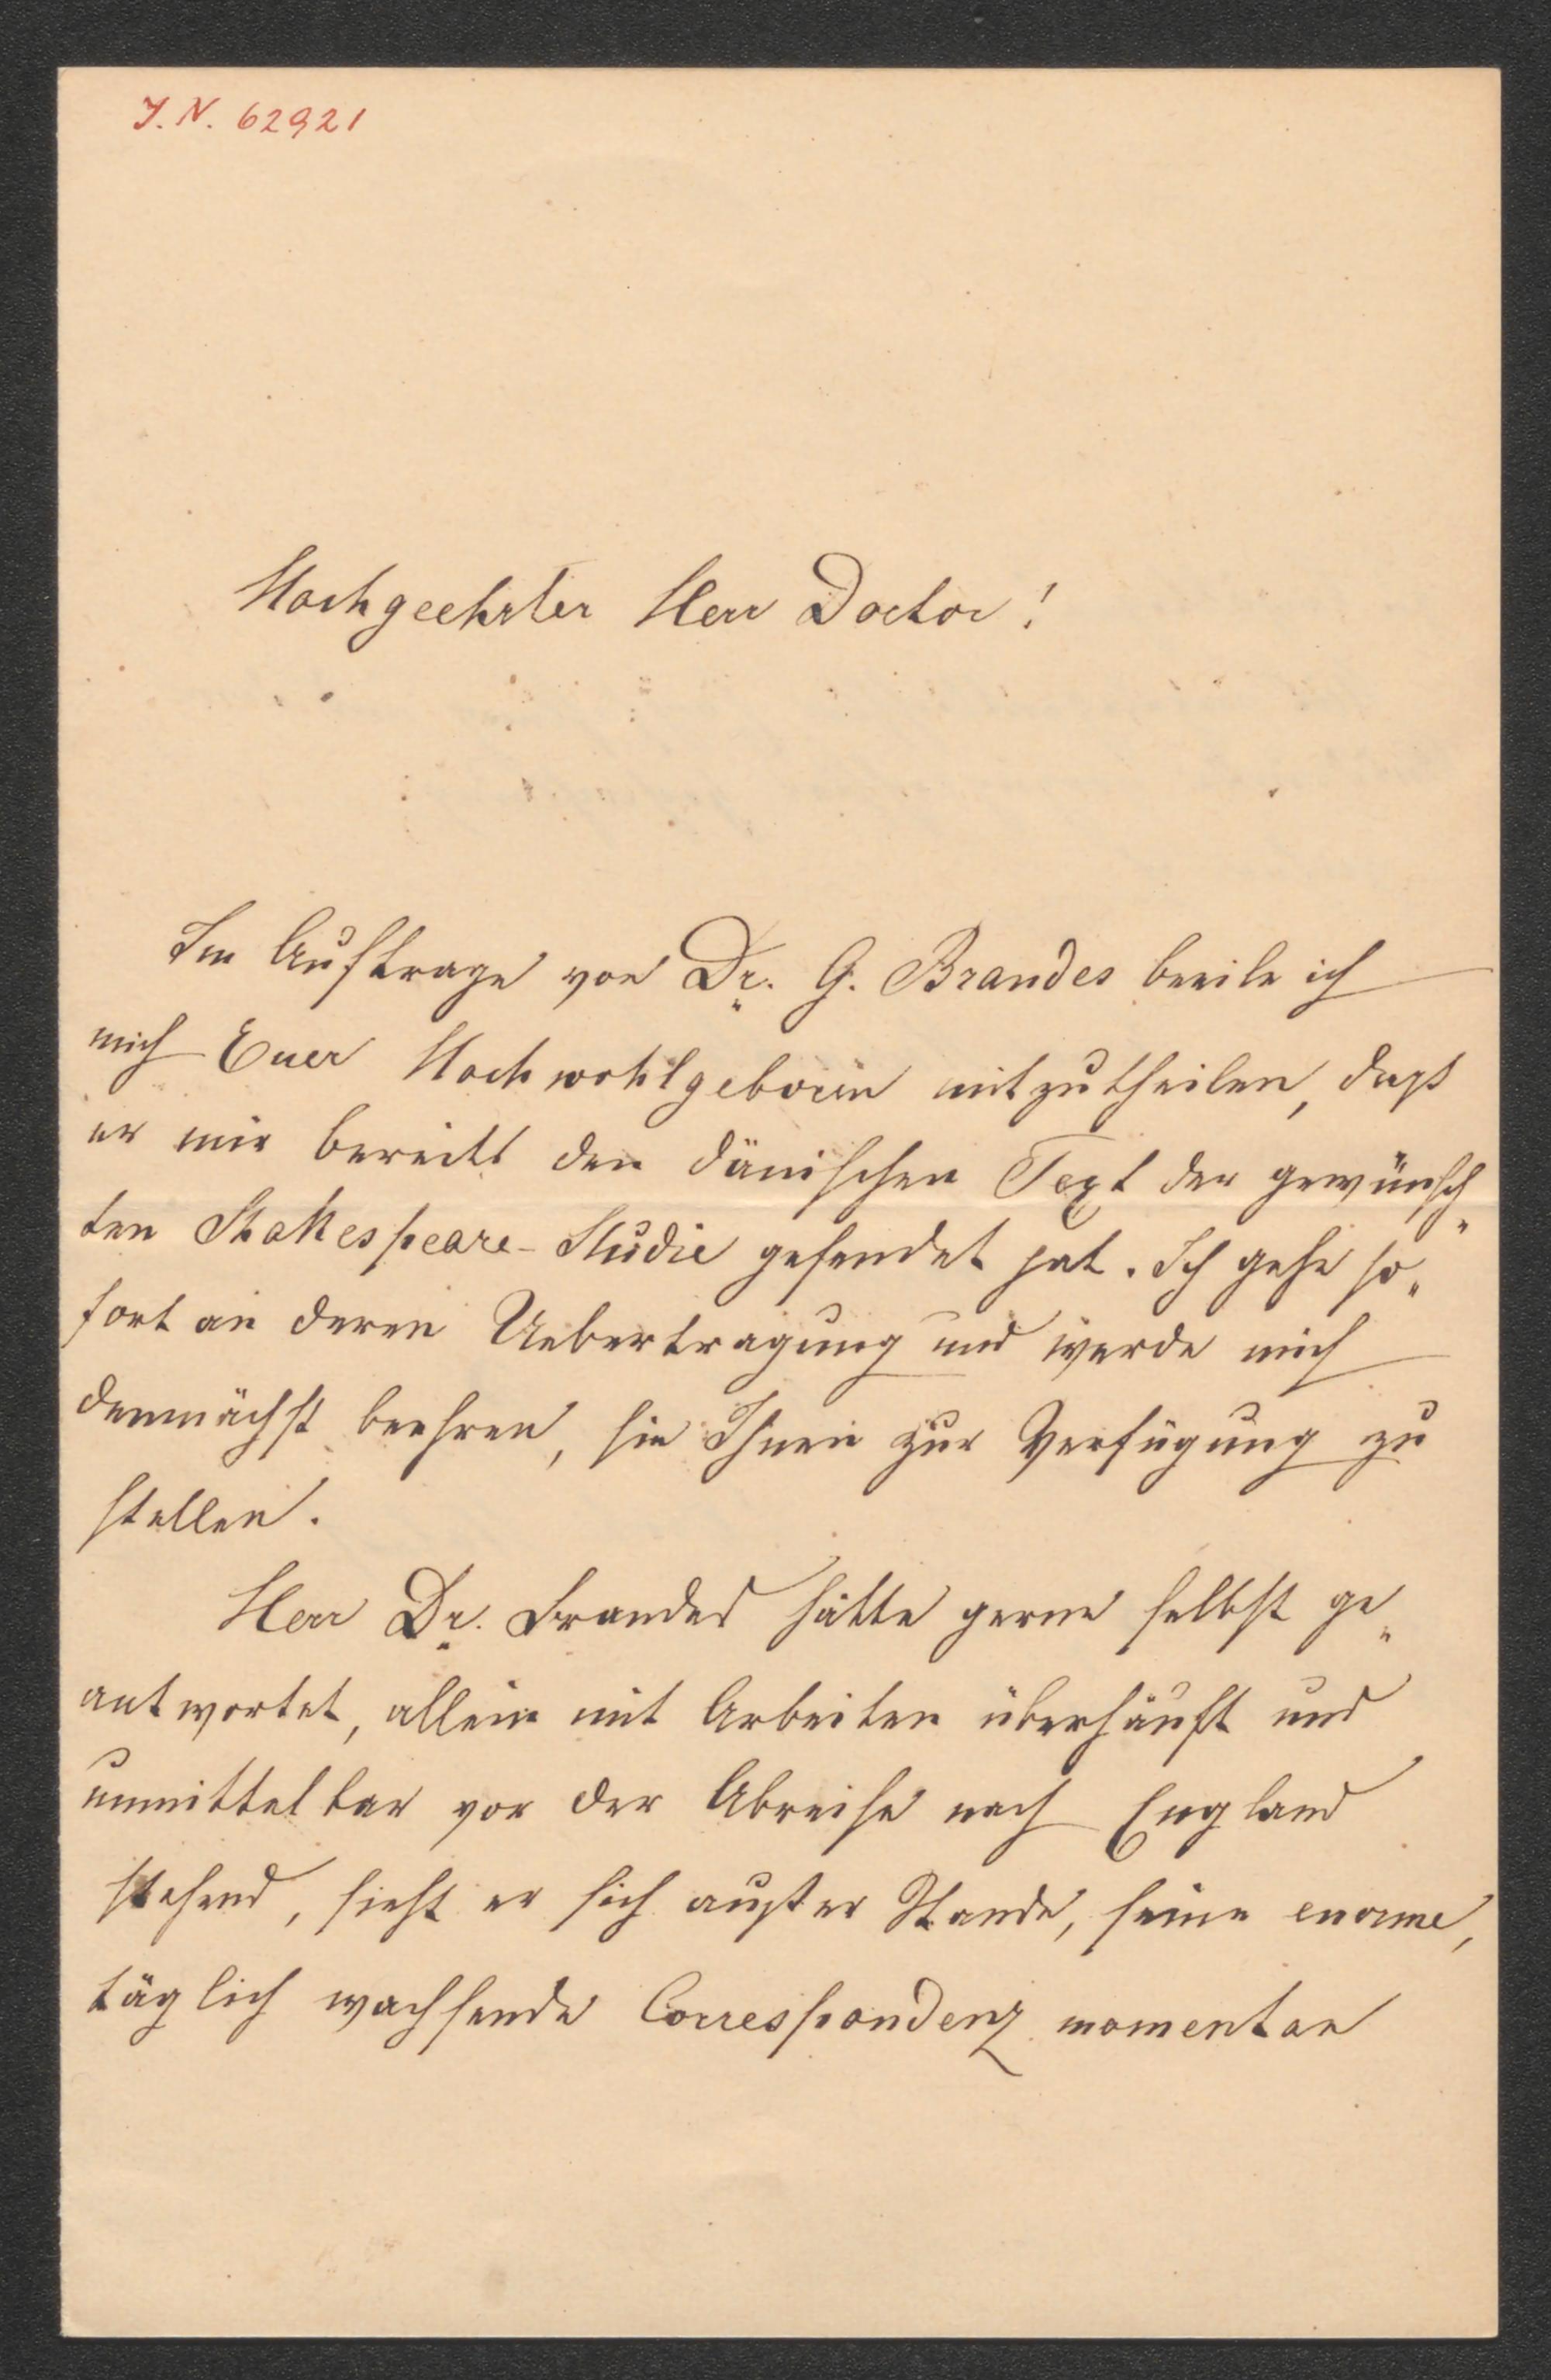 J. N. 62921
Hochgeehrter Herr Doctor!
Im Auftrage von Dr. G. Brandes beeile ich
mich Euer Hochwohlgeboren mitzutheilen, daß
er mir bereits den dänischen Text der gewünsch„
ten Shakespeare-Studie gesendet hat. Ich gehe so„
fort an deren Uebertragung und werde mich
demnächst beehren, sie Ihnen zur Verfügung zu
stellen.
Herr Dr. Brandes hätte gerne selbst ge„
antwortet, allein mit Arbeiten überhäuft und
unmittelbar vor der Abreise nach England
stehend, sieht er sich außer Stande, seine enorme,
täglich wachsende Correspondenz momentan